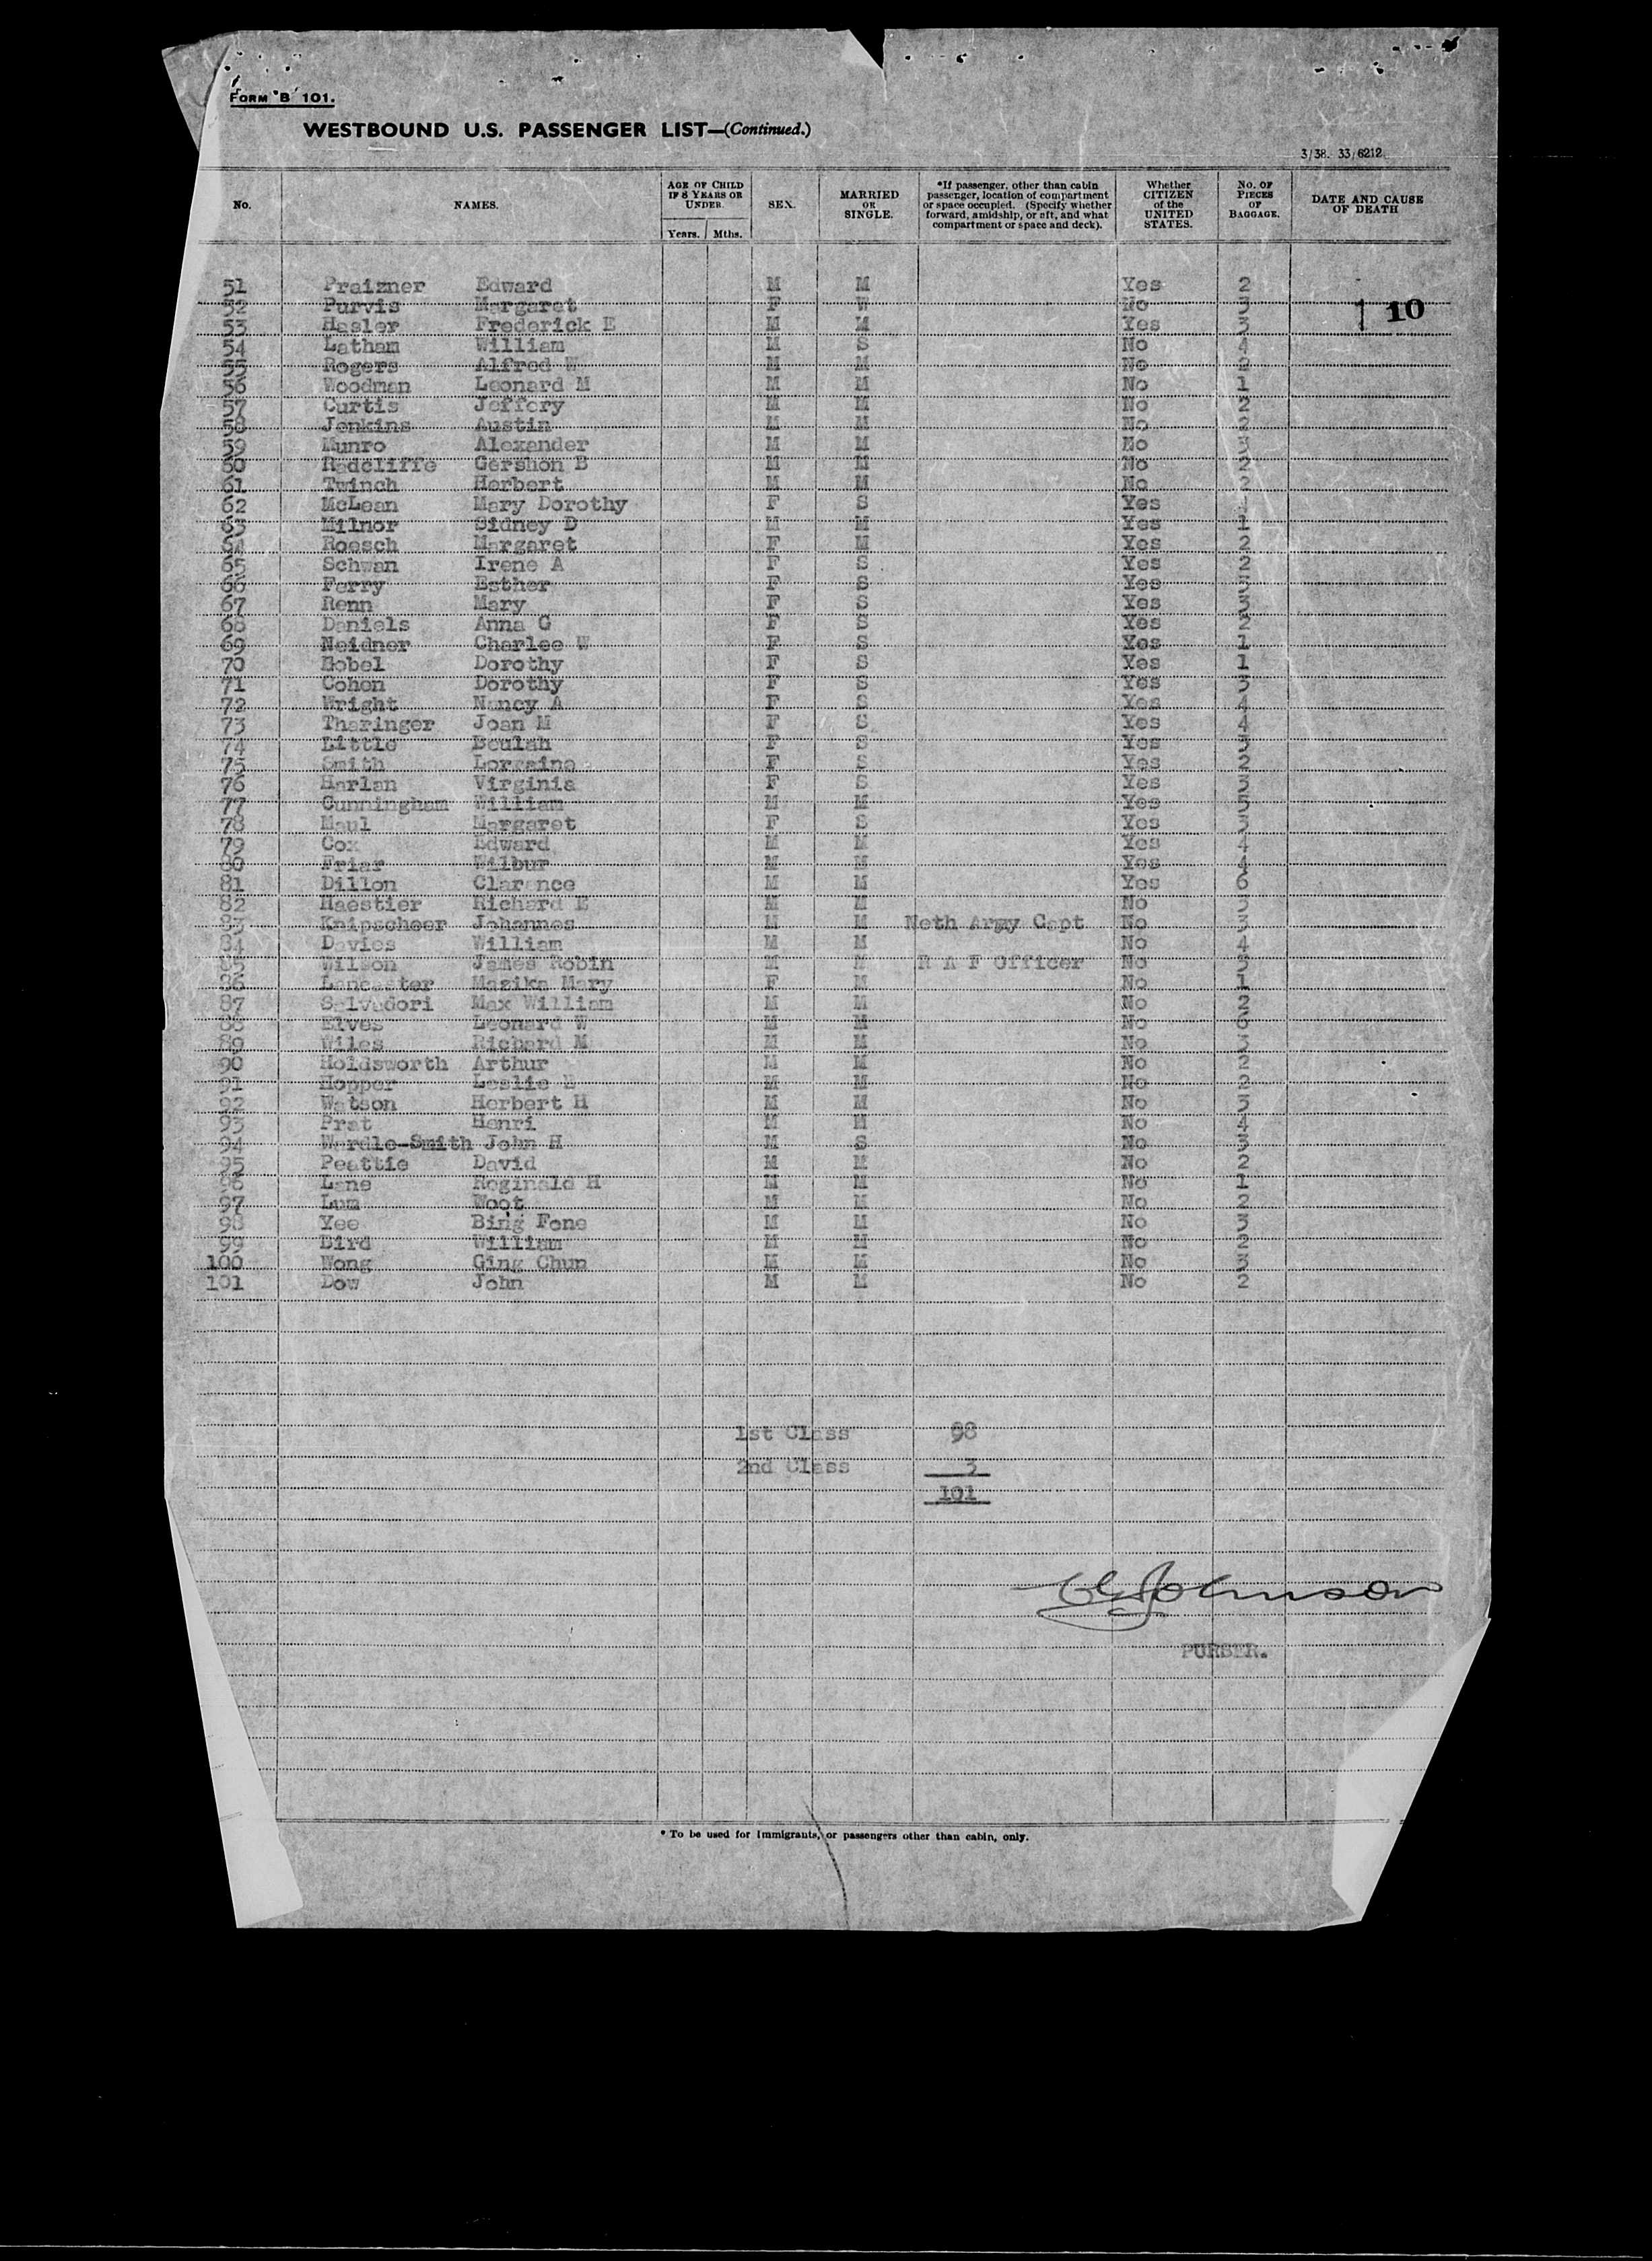 FORM "B" 101.
WESTBOUND U.S. PASSENGER LIST—(Continued.)
3/38. 33/6212
No. NAMES. AGE OF CHILD IF 8 YEARS OR UNDER. Years. Mths. SEX. MARRIED OR SINGLE. *If passenger, other than cabin passenger, location of compartment or space occupied. (Specify whether forward, amidship, or aft, and what compartment or space and deck). Whether CITIZEN of the UNITED STATES. No. OF PIECES OF BAGGAGE. DATE AND CAUSE OF DEATH
51 Praizner Edward M M Yes 2
52 Purvis Margaret F W No 3
10
53 Hasler Frederick E M M Yes 3
54 Latham William M S No 4
55 Rogers Alfred W M M No 2
56 Woodman Leonard M M M No 1
57 Curtis Jeffery M M No 2
58 Jenkins Austin M M No 2
59 Munro Alexander M M No 3
60 Radcliffe Gershon B M M No 2
61 Twinch Herbert M M No 2
62 McLean Mary Dorothy F S Yes
63 Milnor Sidney D M M Yes 1
64 Roesch Margaret F M Yes 2
65 Schwan Irene A F S Yes 2
66 Ferry Esther F S Yes 3
67 Renn Mary F S Yes 3
68 Daniels Anna G F S Yes 2
69 Neidner Charlee W F S Yes 1
70 Hobel Dorothy F S Yes 1
71 Cohen Dorothy F S Yes 3
72 Wright Nancy A F S Yes 4
73 Tharinger Joan M F S Yes 4
74 Little Beulah F S Yes 3
75 Smith Lorraine F S Yes 2
76 Harlan Virginia F S Yes 3
77 Cunningham William M M Yes 5
78 Maul Margaret F S Yes 3
79 Cox Edward M M Yes 4
80 Friar Wilbur M M Yes 4
81 Dillon Clarence M M Yes 6
82 Haestier Richard E M M No 3
83 Knipscheer Johannes M M Neth Army Capt No 3
84 Davies William M M No 4
85 Wilson James Robin M M R A F Officer No 3
86 Lancaster Mazika Mary F M No 1
87 Salvadori Max William M M No 2
88 Elves Leonard W M M No 6
89 Wiles Richard M M M No 3
90 Holdsworth Arthur M M No 2
91 Hopper Leslie M M No 2
92 Watson Herbert H M M No 3
93 Prat Henri M M No 4
94 Wardle-Smith John H M S No 3
95 Peattie David M M No 2
96 Lane Reginald H M M No 1
97 Lum Woot M M No 2
98 Yee Bing Fong M M No 3
99 Bird William M M No 2
100 Wong Ging Chun M M No 3
101 Dow John M M No 2
1st Class 98
2nd Class 3
101
Johnson
PURSER.
* To be used for immigrants, or passengers other than cabin, only.